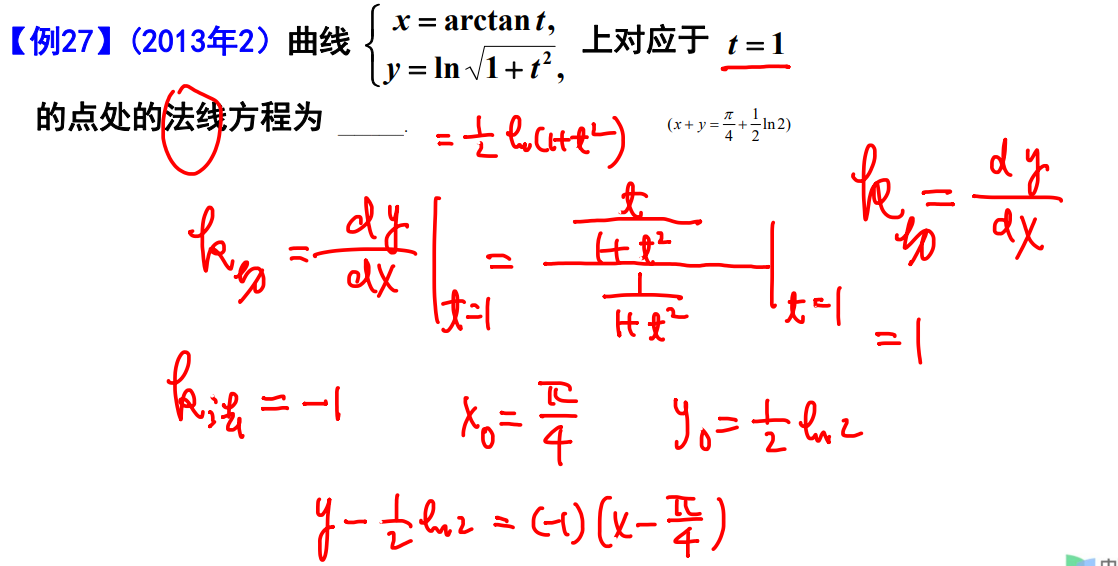 【例27】(2013年2) 曲线 { x = arctan t, y = ln √(1 + t²), 上对应于 t = 1
的点处的法线方程为 ______. (x + y = π/4 + 1/2 ln 2)
= 1/2 ln(1+t²)
k切 = dy/dx
k切 = dy/dx |t=1 = (t/(1+t²))/(1/(1+t²)) |t=1
= 1
k法 = -1 x₀ = π/4 y₀ = 1/2 ln 2
y - 1/2 ln 2 = (-1)(x - π/4)